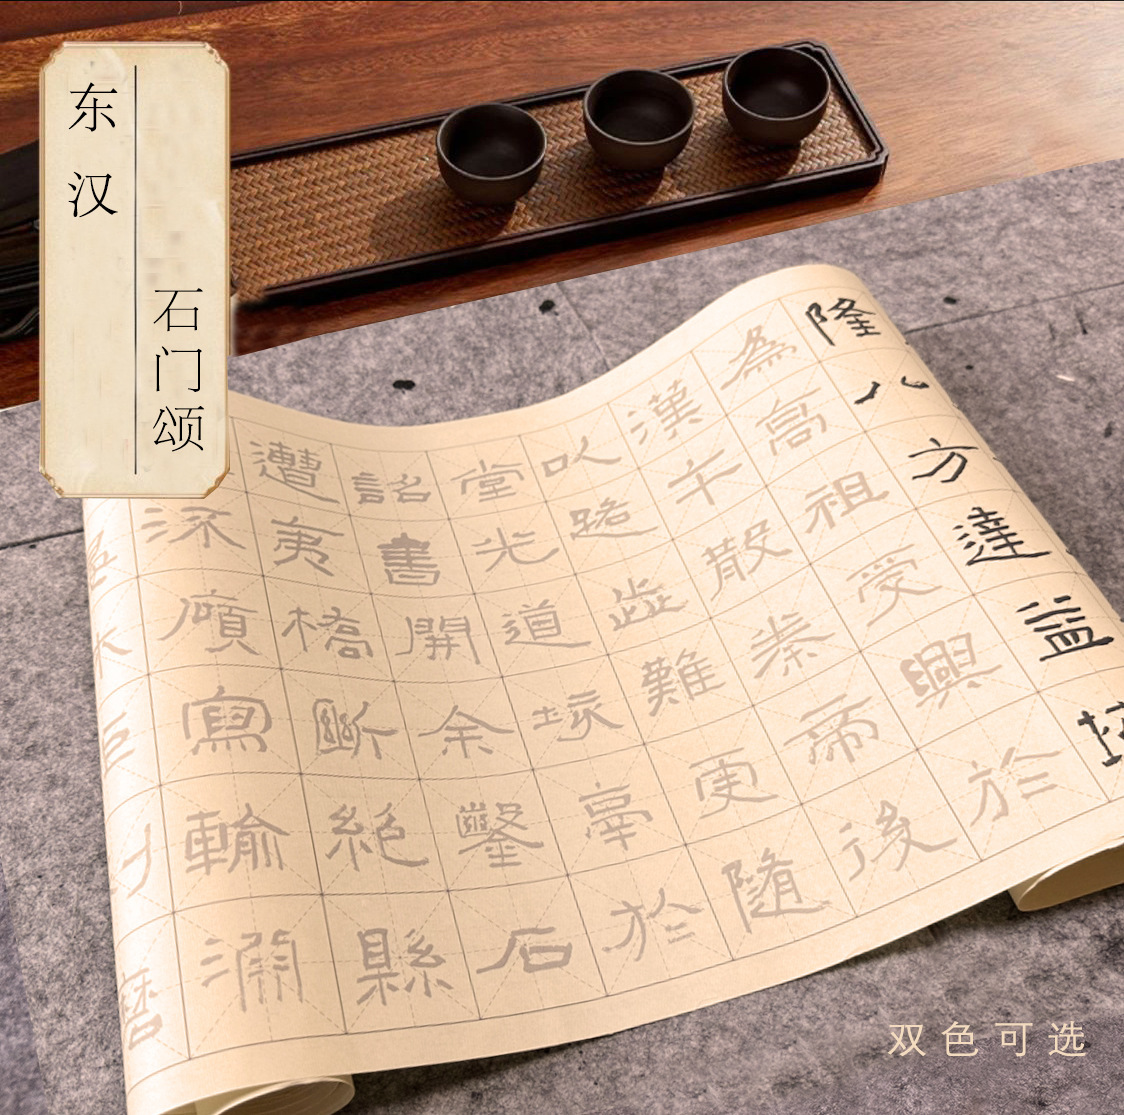 东汉
石门颂
隆八方達益
為高祖受興於
漢午散秦帝後
以路難更隨
堂光道於
詔書開余鑿石
遭夷橋斷絕縣
寫輸淵
双色可选